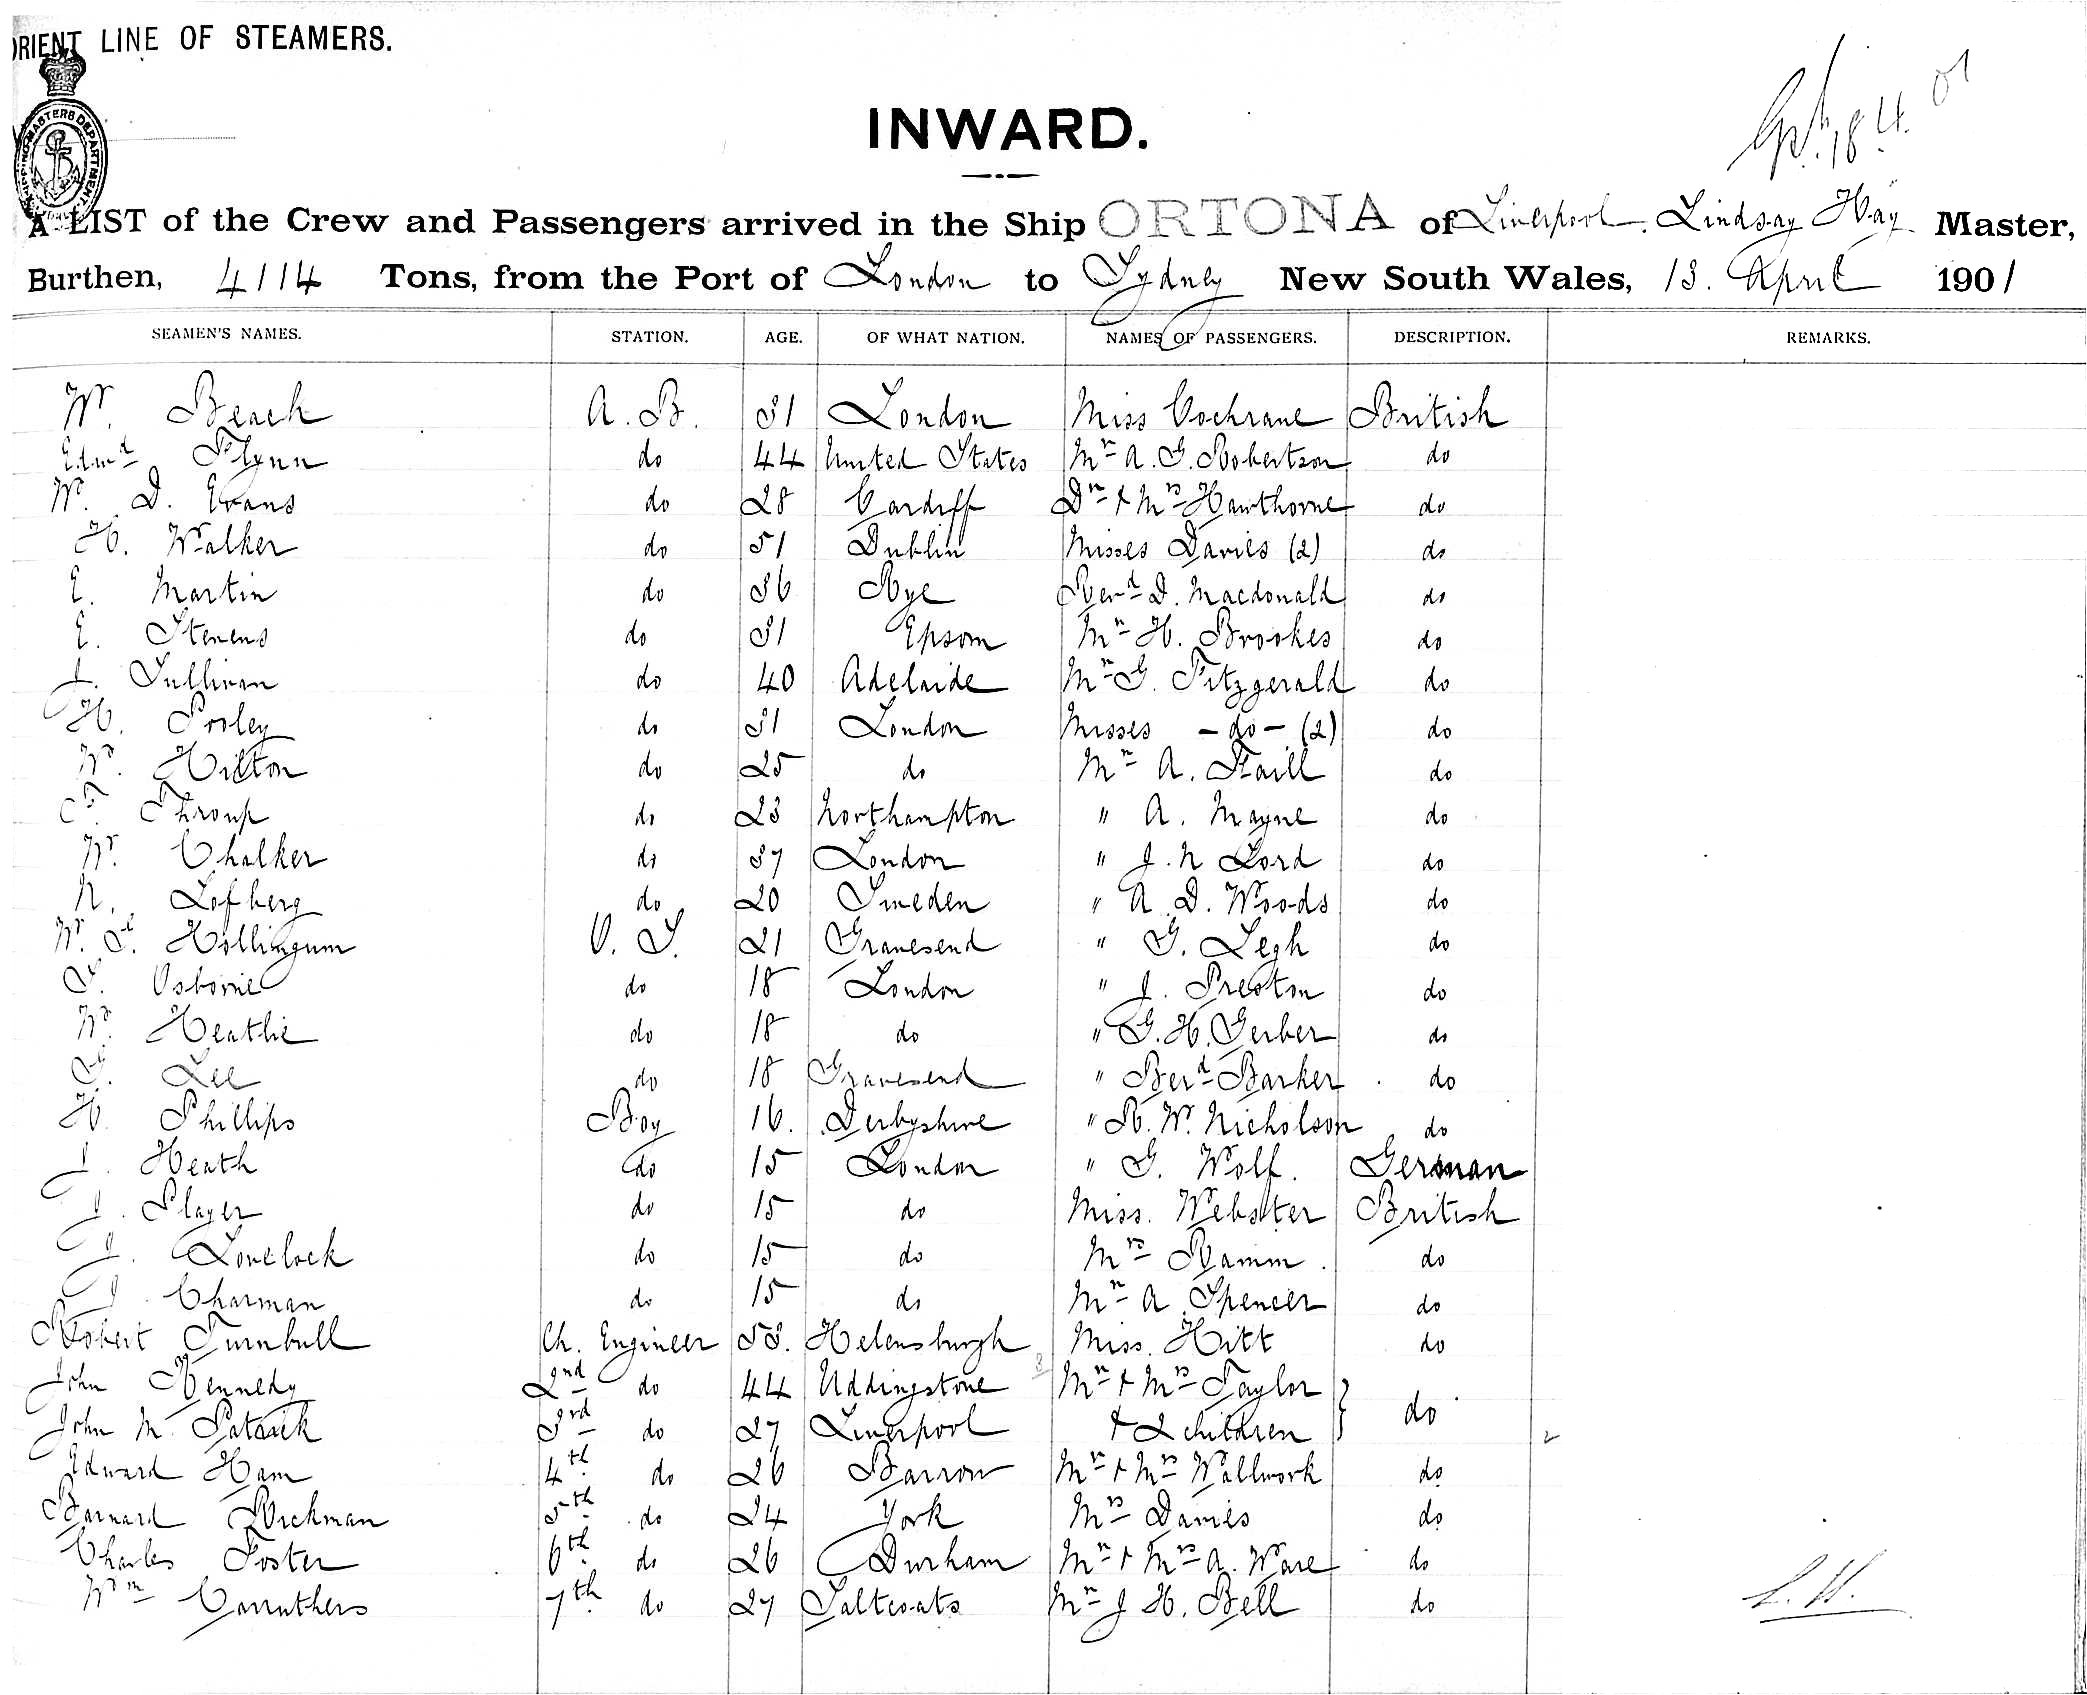 ORIENT LINE OF STEAMERS.
INWARD.
18.4.01
A LIST of the Crew and Passengers arrived in the Ship ORTONA of Liverpool. Lindsay Hay Master,
Burthen, 4114 Tons, from the Port of London to Sydney New South Wales, 13. April 1901
SEAMEN'S NAMES. STATION. AGE. OF WHAT NATION. NAMES OF PASSENGERS. DESCRIPTION. REMARKS.
W. Beach A. B. 31 London Miss Cochrane British
Edmd Flynn do 44 United States Mr A. G. Robertson do
W. D. Evans do 28 Cardiff Dr & Mrs Hawthorne do
H. Walker do 51 Dublin Misses Davies (2) do
E. Martin do 36 Rye Revd D. Macdonald do
E. Stevens do 31 Epsom Mr H. Brookes do
J. Sullivan do 40 Adelaide Mr G. Fitzgerald do
H. Pooley do 31 London Misses - do - (2) do
W. Hilton do 25 do Mr A. Faill do
C. F. Throup do 23 Northampton " A. Mayne do
W. Chalker do 37 London " J. N Lord do
N. Lofberg do 20 Sweden " A. D. Woods do
W. S. Hollingum O. S. 21 Gravesend " G. Legh do
F. Osborne do 18 London " J. Preston do
W. Heathie do 18 do " G. H. Gerber do
G. Lee do 18 Gravesend " Berd Barker do
H. Phillips Boy 16. Derbyshire " R. W. Nicholson do
J. Heath do 15 London " G. Wolf. German
J. Player do 15 do Miss. Webster British
J. Lovelock do 15 do Mrs Ramm. do
J. Charman do 15 do Mr A Spencer do
Robert Turnbull Ch. Engineer 53. Helensburgh Miss. Hitt do
John Kennedy 2nd do 44 Uddingstone Mr & Mrs Taylor
John M. Patrick 3rd do 27 Liverpool & 2 children do
Edward Ham 4th do 26 Barrow Mr & Mrs Wallwork do
Barnard Rickman 5th do 24 York Mrs Davies do
Charles Foster 6th do 26 Durham Mr & Mrs A. Ware do
Wm Carruthers 7th do 27 Saltcoats Mr J H. Bell do
L. H.